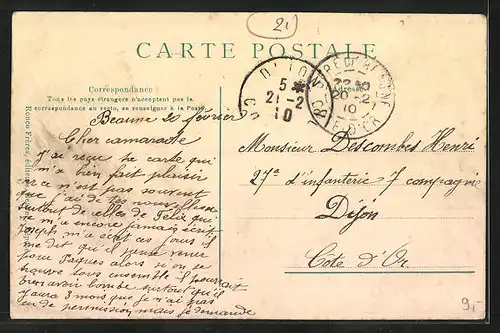 21
CARTE POSTALE
Correspondance
Tous les pays étrangers n'acceptent pas la
correspondance au recto, se renseigner à la Poste.
Adresse
DIJON
5
21-2
10
GARE DE BEAUNE
20-2
10
CÔTE D'OR
Ronco Frères
Beaune 20 février
Cher camarade
J'ai reçue ta carte qui
m'a bien fait plaisir
car ce n'est pas souvent
que j'ai de tes nouvelles
surtout de celles de Félix qui
ne m'a encore jamais écrit
Joseph m'a écrit ces jours il
me dit qu'il pense venir
pour Pâques alors si on se
trouve tous ensemble il pourrait
y avoir bombe surtout qu'il
y aura 3 mois que je n'ai pas
eu de permission mais je demande
Monsieur Descombes Henri
27e d'infanterie 7 compagnie
Dijon
Côte d'Or
9,-